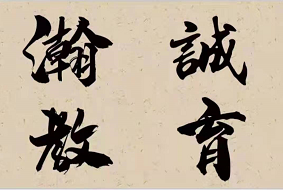 瀚誠
教育